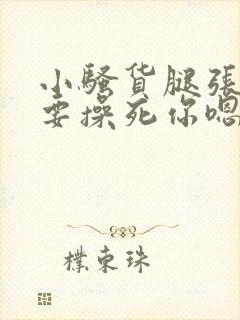 小骚货腿張
要操死你嗯
樸東珠